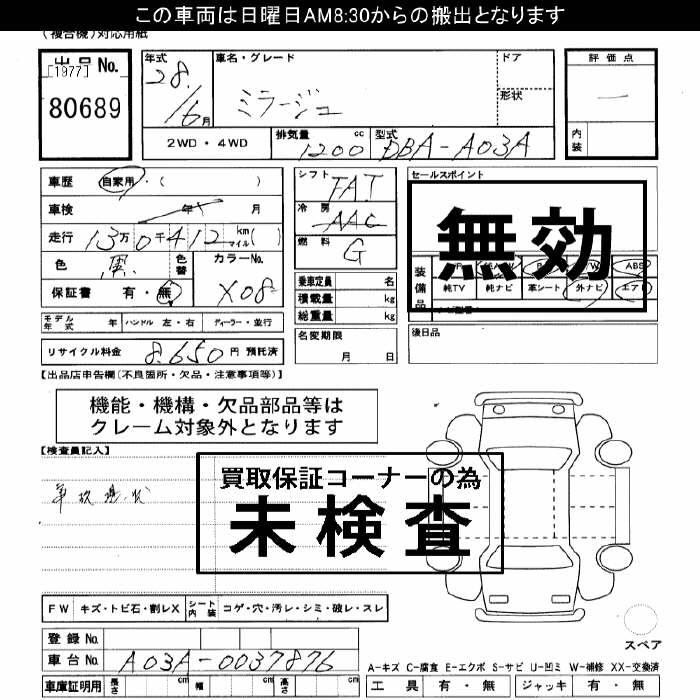 この車両は日曜日AM8:30からの搬出となります
(複合機)対応用紙
出品No.
[1977]
80689
年式
28年
6月
車名・グレード
ミラージュ
ドア
形状
評価点
内装
2WD・4WD
排気量 cc
1200
型式
DBA-A03A
車歴 自家用・( )
車検 年 月
走行 13万0千412 km マイル( )
色 黒
色替
カラーNo.
X08
保証書 有・無
モデル年式 年
ハンドル 左・右
ディーラー・並行
リサイクル料金 8,650円 預託済
シフト FAT
冷房 AAC
燃料 G
乗車定員 名
積載量 kg
総重量 kg
名変期限
月 日
セールスポイント
無効
装備品
ABS
純TV
純ナビ
革シート
外ナビ
エアB
後日品
【出品店申告欄(不良箇所・欠品・注意事項等)】
機能・機構・欠品部品等は
クレーム対象外となります
【検査員記入】
買取保証コーナーの為
未検査
FW キズ・トビ石・割レX
シート内装 コゲ・穴・汚レ・シミ・破レ・スレ
登録No.
車台No. A03A-0037876
車庫証明用 長さ cm 幅 cm 高さ cm
スペア
A-キズ C-腐食 E-エクボ S-サビ U-凹ミ W-補修 XX-交換済
工具 有・無
ジャッキ 有・無